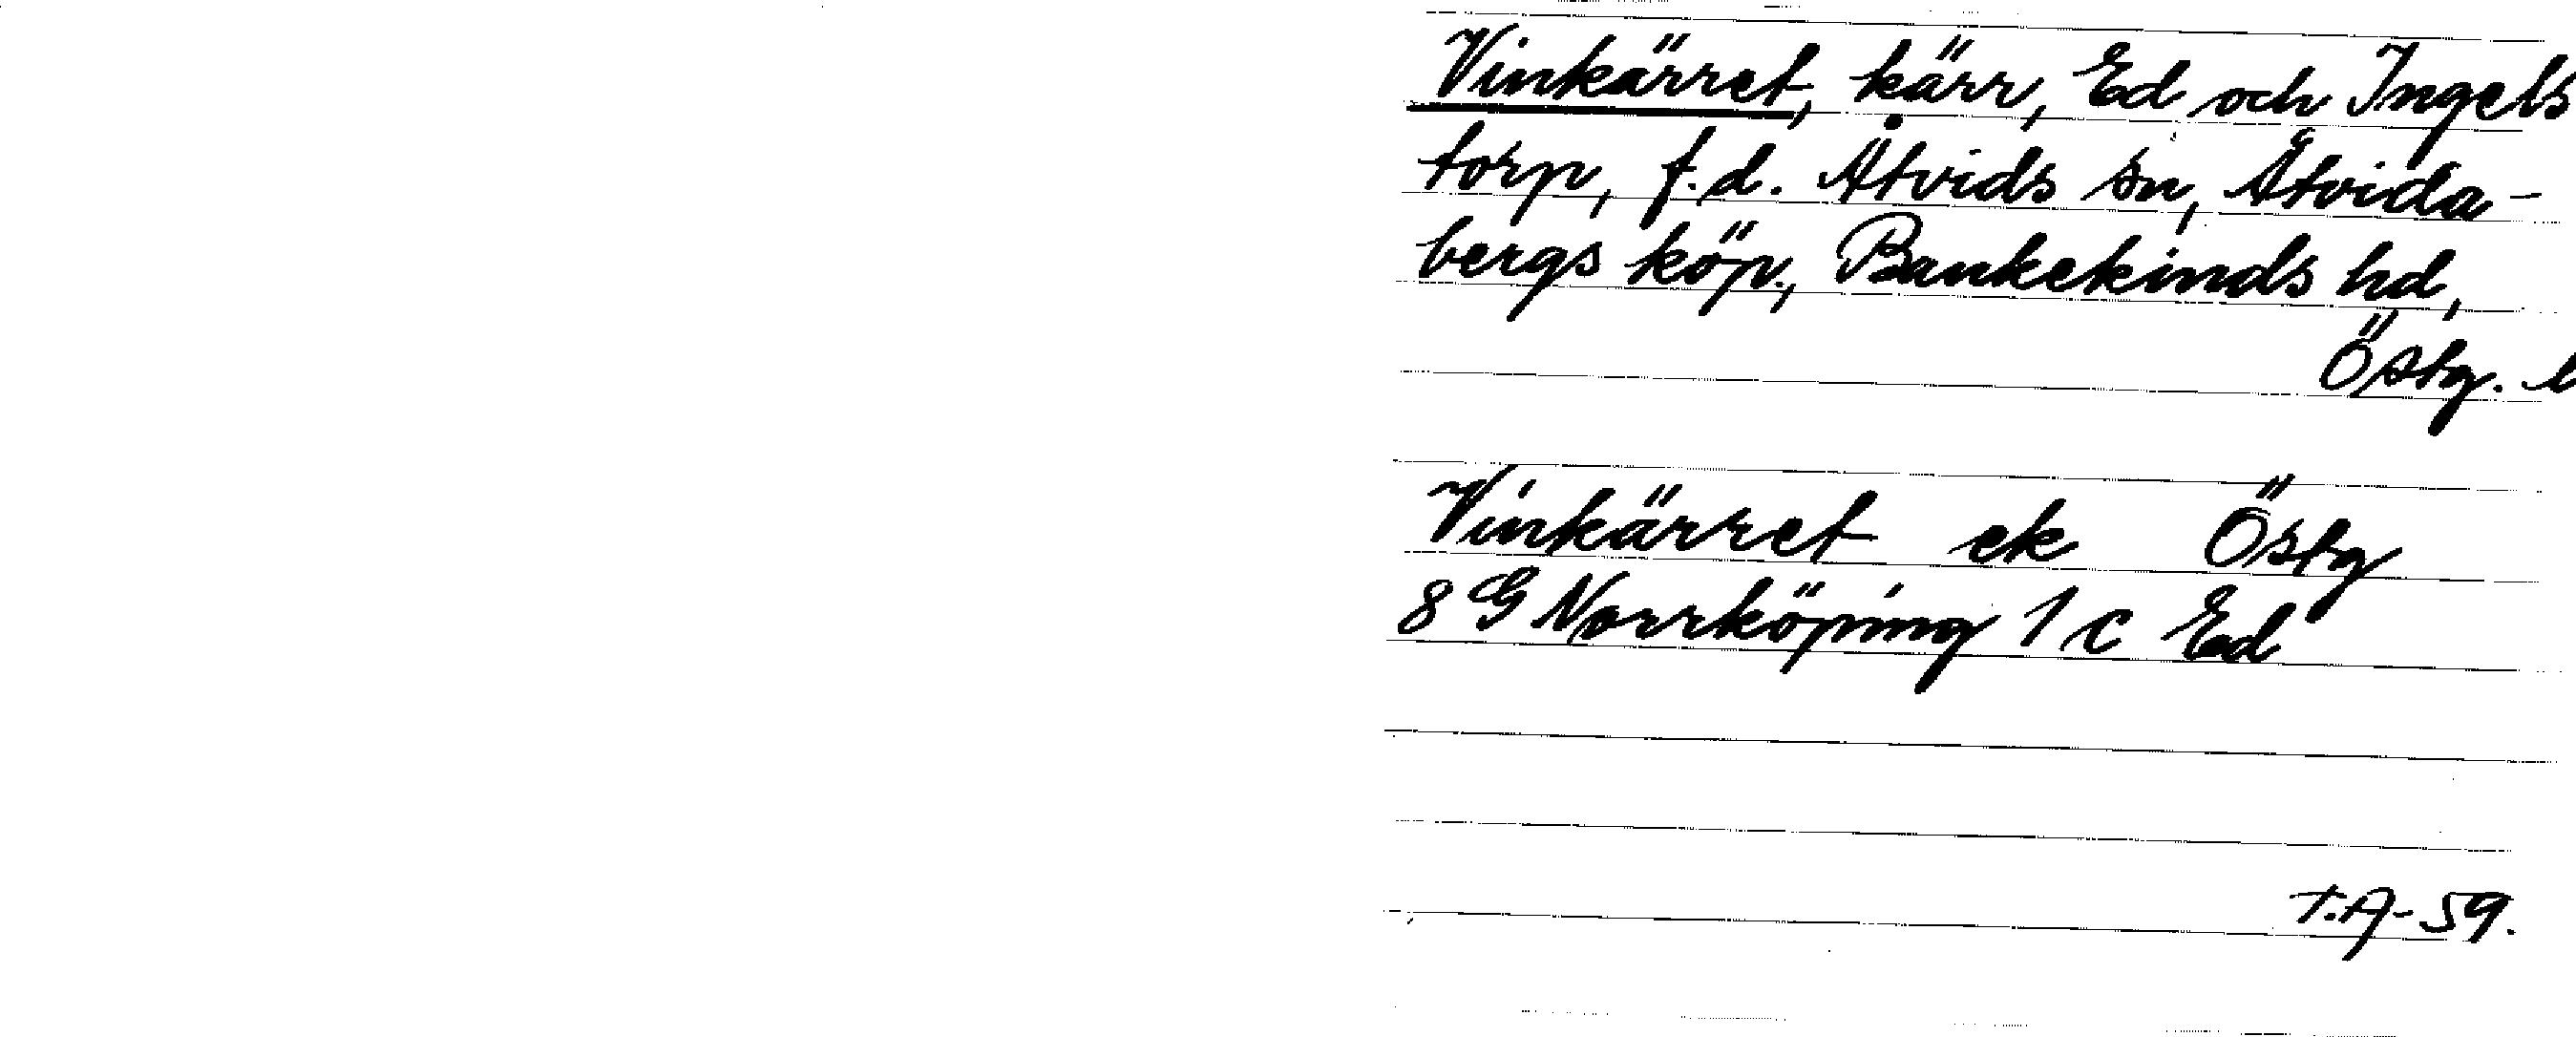 Vinkärret, kärr, Ed och Ingels
torp, f.d. Åtvids sn, Åtvida-
bergs köp., Bankekinds hd,
Östg. l
Vinkärret ek Östg
8 G Norrköping 1 c Ed
T.A-59.